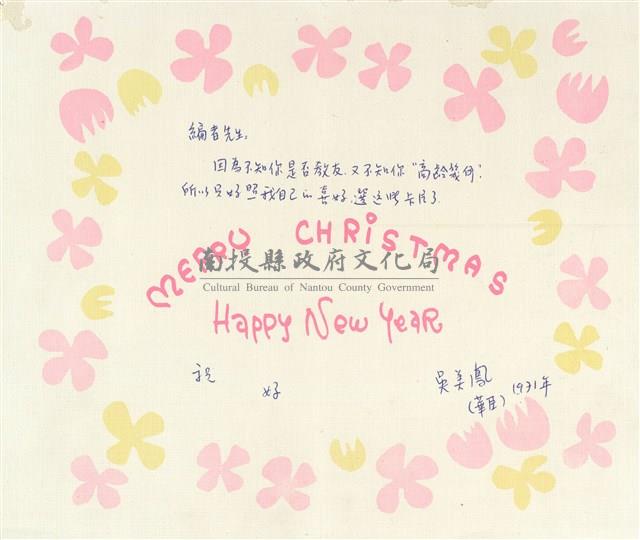 編者先生:
因為不知你是否教友,又不知你"高齡幾何",
所以只好照我自己的喜好,選這张卡片了.
MERRY CHRISTMAS
南投縣政府文化局
Cultural Bureau of Nantou County Government
Happy New Year
祝
好
吳美鳳
(華臣) 1971年